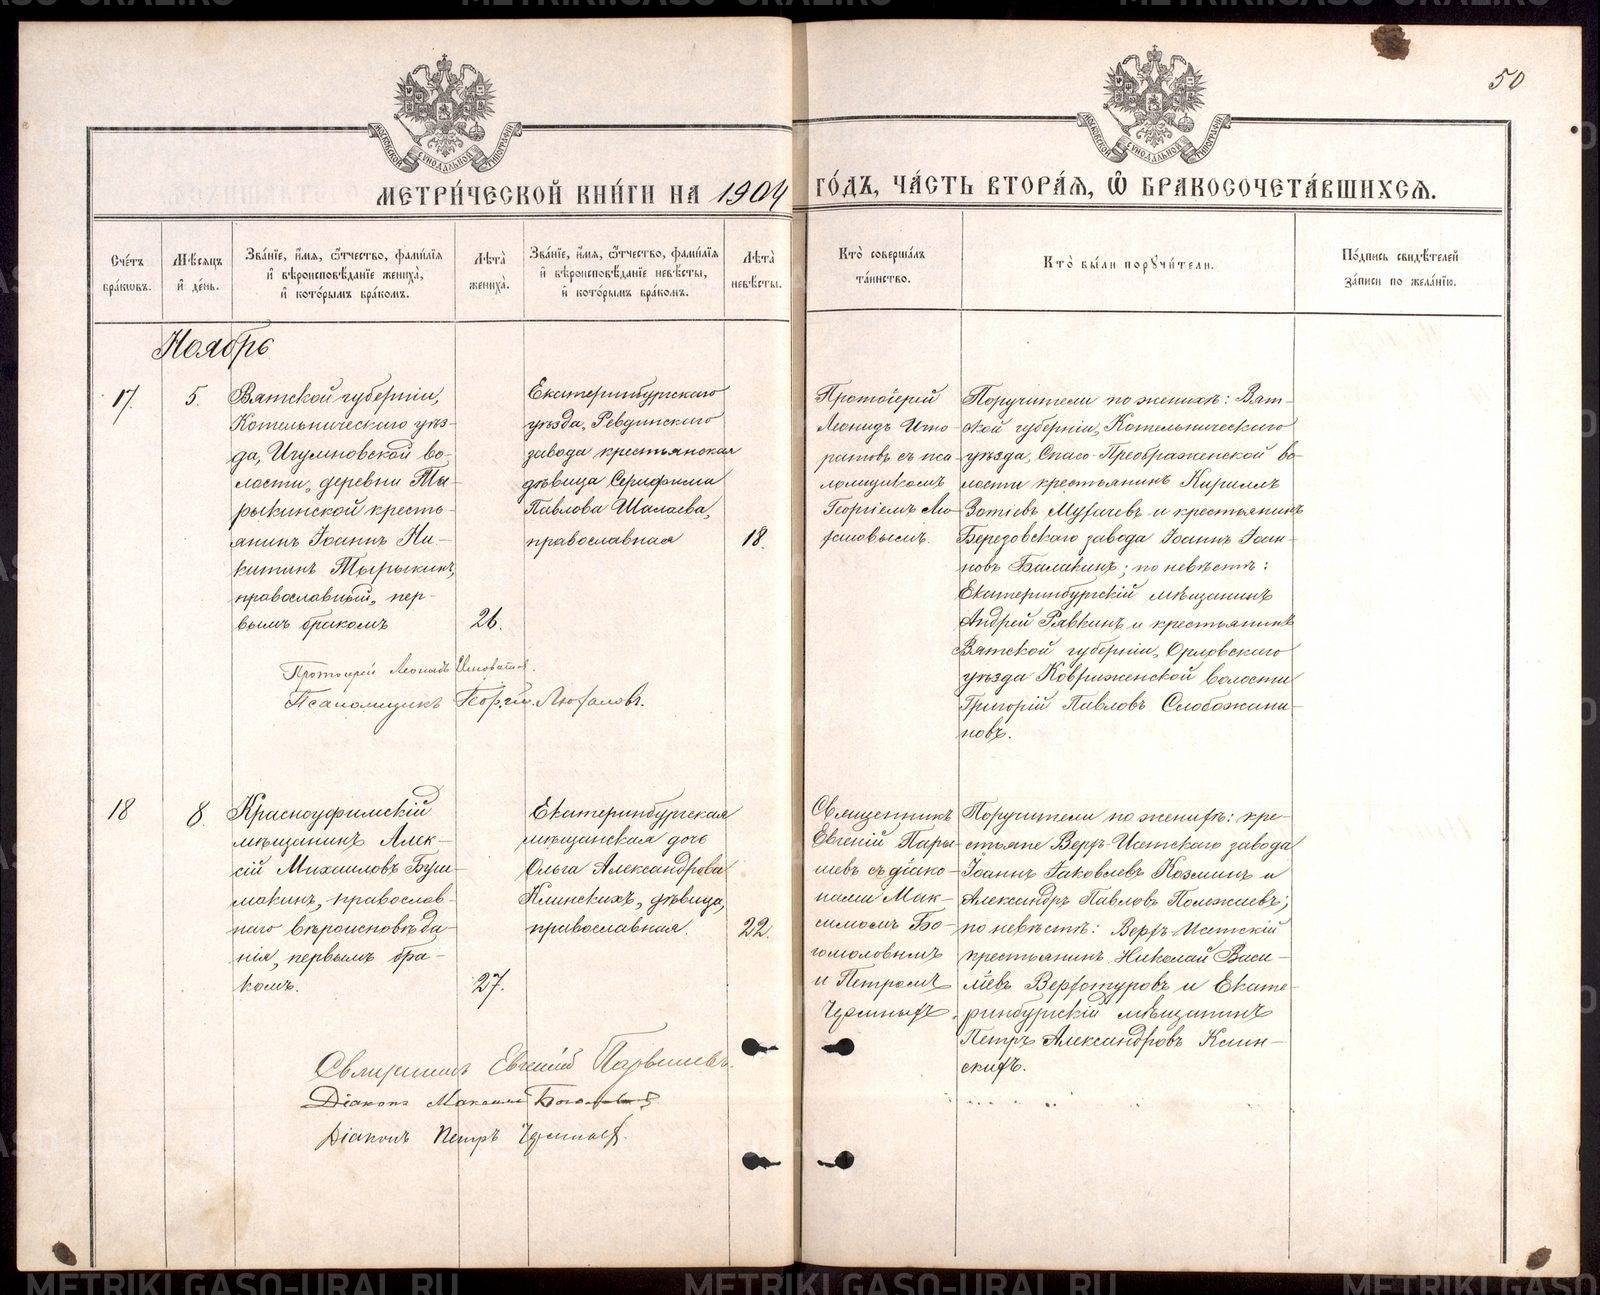 50
МЕТРИ́ЧЕСКОЙ КНИ́ГИ НА 1904 ГО́ДЪ, ЧА́СТЬ ВТОРА́Я, Ѡ҆ БРАКОСОЧЕТА́ВШИХСЯ.
Сче́тъ бра́ковъ.
Мѣ́сяцъ и҆ де́нь.
Зва́нїе, и҆́мя, ѻ҆́тчество, фами́лїя и҆ вѣроисповѣ́данїе жениха̀, и҆ кото́рымъ бра́комъ.
Лѣ́та жениха̀.
Зва́нїе, и҆́мя, ѻ҆́тчество, фами́лїя и҆ вѣроисповѣ́данїе невѣ́сты, и҆ кото́рымъ бра́комъ.
Лѣ́та невѣ́сты.
Кто̀ соверша́лъ та́инство.
Кто̀ бы́ли поручи́тели.
По́дпись свидѣ́телей за́писи по жела́нїю.
Ноябрь
17.
5.
Вятской губерніи,
Котельническаго уѣз-
да, Игумновской во-
лости, деревни Ты-
рыкинской кресть-
янинъ Іоаннъ Ни-
китинъ Тырыкинъ,
православный, пер-
вымъ бракомъ
26.
Екатеринбургскаго
уѣзда, Ревдинскаго
завода крестьянская
дѣвица Серафима
Павлова Шалаева,
православная
18.
Протоіерей
Леонидъ Игно-
ратовъ съ пса-
ломщикомъ
Георгіемъ Лю-
Поручители по женихѣ: Вят-
ской губерніи, Котельническаго
уѣзда, Спасо-Преображенской во-
лости крестьянинъ Кириллъ
Зотіевъ и крестьянинъ
Березовскаго завода Іоаннъ Іоан-
новъ Балакинъ; по невѣстѣ:
Екатеринбургскій мѣщанинъ
Андрей Рявкинъ и крестьянинъ
Вятской губерніи, Орловскаго
уѣзда Ковриженской волости
Григорій Павловъ Слобожани-
новъ.
Протоіерей Леонидъ
Псаломщикъ Георгій
18
8.
Красноуфимскій
мѣщанинъ Алек-
сій Михаиловъ Буш-
макинъ, православ-
наго вѣроисповѣда-
нія, первымъ бра-
комъ.
27.
Екатеринбургская
мѣщанская дочь
Ольга Александрова
Клинскихъ, дѣвица,
православная.
22.
Священникъ
Евгеній Пары-
шевъ съ діако-
нами Мак-
симомъ Бо-
гомоловымъ
и Петромъ
Поручители по женихѣ: кре-
стьяне Верх-Исетскаго завода
Іоаннъ Іаковлевъ Козминъ и
Александръ Павловъ Полежаевъ;
по невѣстѣ: Верхъ-Исетскій
крестьянинъ Николай Васи-
ліевъ Верхотуровъ и Екате-
ринбургскій мѣщанинъ
Петръ Александровъ Клин-
скихъ.
Священникъ Евгеній Парышевъ.
Діаконъ Максимъ
Діаконъ Петръ
METRIKI.GASO-URAL.RU